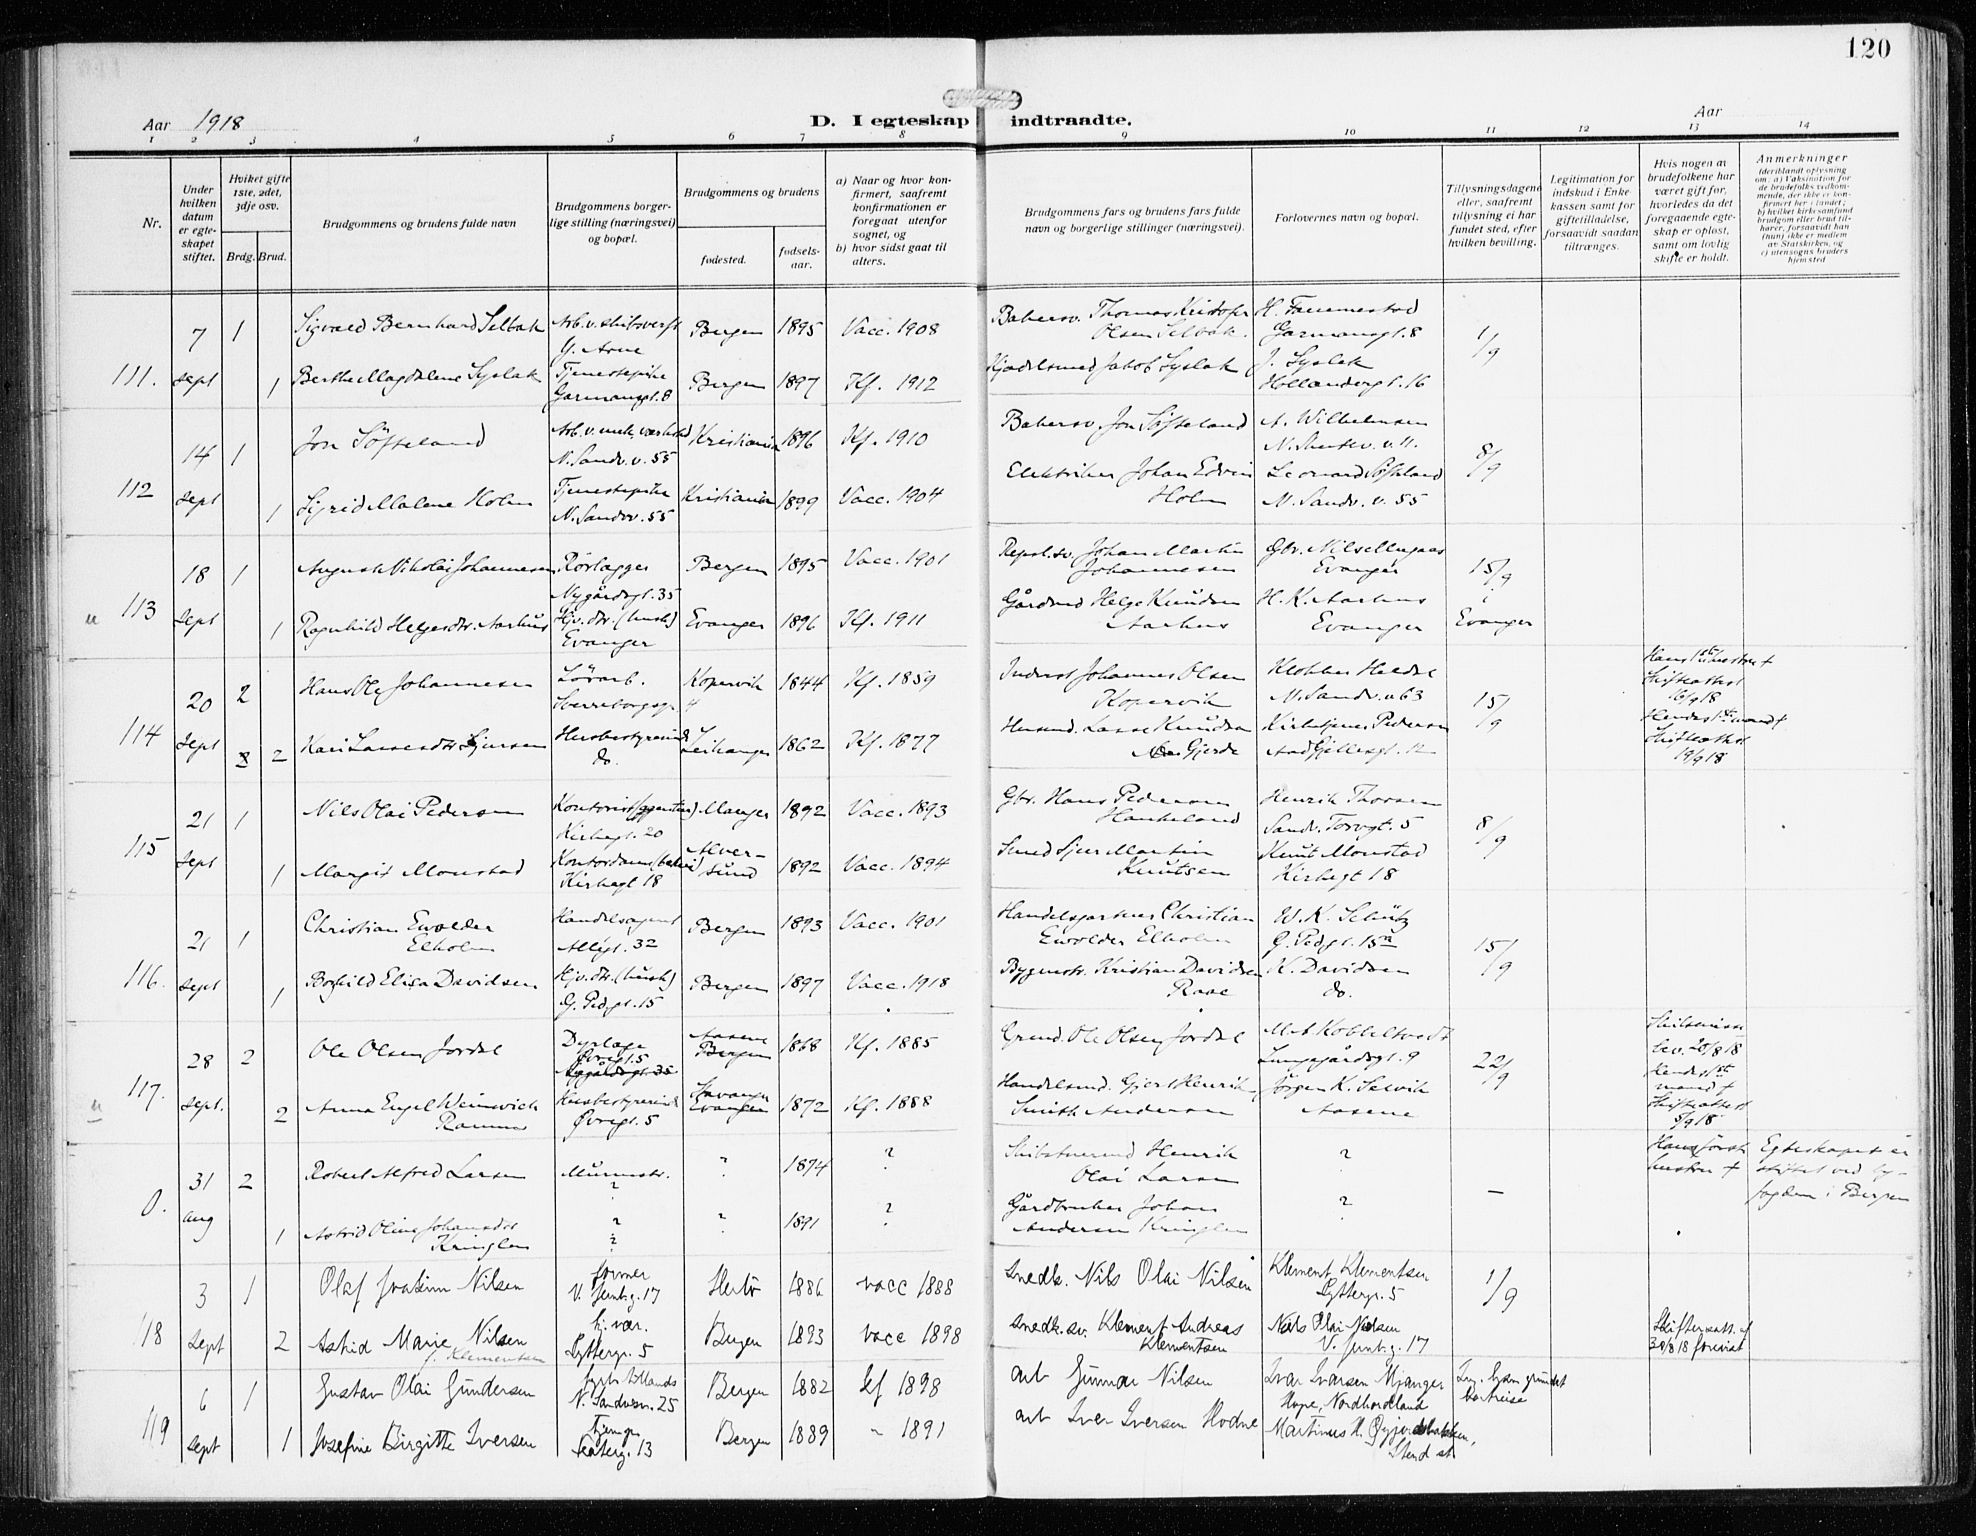 120
Aar 1918
D. I egteskap indtraadte.
Aar
1 2 3 4 5 6 7 8 9 10 11 12 13 14
Nr.
Under hvilken datum er egteskapet stiftet.
Hviket gifte 1ste, 2det, 3dje osv.
Brdg. Brud.
Brudgommens og brudens fulde navn
Brudgommens borgerlige stilling (næringsvei) og bopæl.
Brudgommens og brudens
fødested.
fødselsaar.
a) Naar og hvor konfirmert, saafremt konfirmationen er foregaat utenfor sognet, og
b) hvor sidst gaat til alters.
Brudgommens fars og brudens fars fulde navn og borgerlige stillinger (næringsvei).
Forlovernes navn og bopæl.
Tillysningsdagene eller, saafremt tillysning ei har fundet sted, efter hvilken bevilling.
Legitimation for indskud i Enkekassen samt for giftetilladelse, forsaavidt saadan tiltrænges.
Hvis nogen av brudefolkene har været gift før, hvorledes da det foregaaende egteskap er opløst, samt om lovlig skifte er holdt.
Anmerkninger
(deriblandt oplysning om: a) Vaksination for de brudefolks vedkommende, der ikke er konfirmert her i landet; b) hvilket kirkesamfund brudgom eller brud tilhører, forsaavidt han (hun) ikke er medlem av Statskirken, og c) utensogns bruders hjemsted
111. 7 sept 1 Sigvald Bernhard Selbak Arb. v. skibsverft Bergen 1895 Vacc. 1908 Thomas Kristofer Olsen Selbak. H. Fannemestad Garmansgt. 8 1/9
1 Berthe Magdalene Syslak Tjenestepike Garmansgt. 8 Bergen 1897 Kf. 1912 Kjedelsmed Jakob Syslak J. Syslak Hollendergt. 16
112 14 sept 1 Jon Söfteland Arb. v. mek. værksted N. Sandv. v. 55 Kristiania 1896 Kf. 1910 Jon Söfteland A. Wilhelmsen 8/9
1 Sigrid Malene Holm Tjenestepike N. Sandv. 55 Kristiania 1899 Vacc. 1904 Elektriker Johan Edvin Holm Leonard Söfteland N. Sandv. v. 55
113 18 sept 1 August Nikolai Johannesen Rörlægger Nygårdsgt. 35 Bergen 1895 Vacc. 1901 Johan Martin Johannesen Gbr. Nils Mugaas Evanger 15/9 i Evanger
1 Ragnhild Helgesdtr. Aarhus Hjv. dtr. (hush) Evanger Evanger 1896 Kf. 1911 Gårdmd Helge Knudsen Aarhus H. K. Aarhus Evanger
114 20 sept 2 Hans Olai Johannesen Kopervik 1844 Kf. 1859 Johannes Olsen Kopervik Klokker Heldal N. Sandv. v. 63 15/9 Hans 1ste hustru + Skifteattest 16/9 18
2 Kari Larsesdtr Husbestyrerinde do. Leikanger 1862 Kf. 1877 Husmd. Lasse Knudsen Gjerde Kirketjener Pedersen Aad Gjellesgt. 12 Hendes 1ste mand + skifteattest 19/9 18
115 21 sept 1 Nils Olai Pedersen Kontorist Kirkegt. 20 Manger 1892 Vacc. 1893 Gbr. Hans Pedersen Haukeland Henrik Thorsen Sandv. Torvgt. 5 8/9
1 Margit Monstad Kontordame Kirkegt 18 Alversund 1892 Vacc. 1894 Smed Sjur Martin Knutsen Knut Monstad Kirkegt 18
116. 21 sept 1 Christian Ewolder Elholm Handelsagent Allégt. 32 Bergen 1893 Vacc. 1901 Handelsgartner Christian Ewolder Elholm W. K. Schütz G. Pedgt. 15a 15/9
1 Borghild Elisa Davidsen Hjv. dtr. (hush) G. Pedgt. 15 Bergen 1897 Vacc. 1918 Bygmstr. Kristian Davidsen K. Davidsen do.
117. 28 sept. 2 Ole Olsen Jordal Övregt. 5 Nygårdsgt. 35 Aasene Bergen 1868 Kf. 1885 Ole Olsen Jordal Lungegårdsgt. 9 22/9 Skilsmisse bev. 20/8 18
2 Anna Engel Weinwich Rammer Husbestyrerinde Övregt. 5 Stavanger Evanger 1872 Kf. 1888 Handelsmd. Gjert Henrik Smith Andersen Jørgen K. Selvik Aasene Hendes 1ste mand + Skifteattest 5/9 18
0. 31 aug 2 Robert Alfred Larsen Murmstr. ? ? 1874 ? Henrik Olai Larsen ? — Hans første hustru + Egteskapet er stiftet ved byfogden i Bergen
1 Astrid Olina Johansdtr Kringlen ? ? ? 1891 ? Gårdbruker Johan Andersen Kringlen ?
118 3 sept 1 Olaf Joakim Nilsen former 1886 vacc 1888 snedk. Nils Olai Nilsen Klement Klementsen Lyttergr. 5 1/9
2 Astrid Marie Nilsen f. Klementsen Lyttergr. 5 Bergen 1893 vacc 1898 snedk. sv. Klement Andreas Klementsen Nils Olai Nilsen Skifteratt. af 30/8 18 forevist
119 6 sept 1 Gustav Olai Gundersen N. Sandvsv. 25 Bergen 1882 kf 1898 arb Gunnar Nilsen Ivar Ivarsen Mjanger Hope, Nordhordland
1 Josefine Birgitte Iversen Bergen 1889 " 1891 arb Iver Iversen Hodne Martinus H. Stend st.